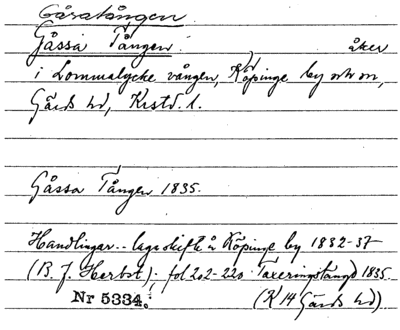 Gåsatången
Gåssa Tången åker
i Lommalycke vången, Köpinge by och sn,
Gärds hd, Krstd. l.
Gåssa Tången 1835.
Handlingar .. laga skifte å Köpinge by 1832-37
(B. J. Herbst); fol 202-220 Taxeringslängd 1835
Nr 5334. (K 14 Gärds hd)